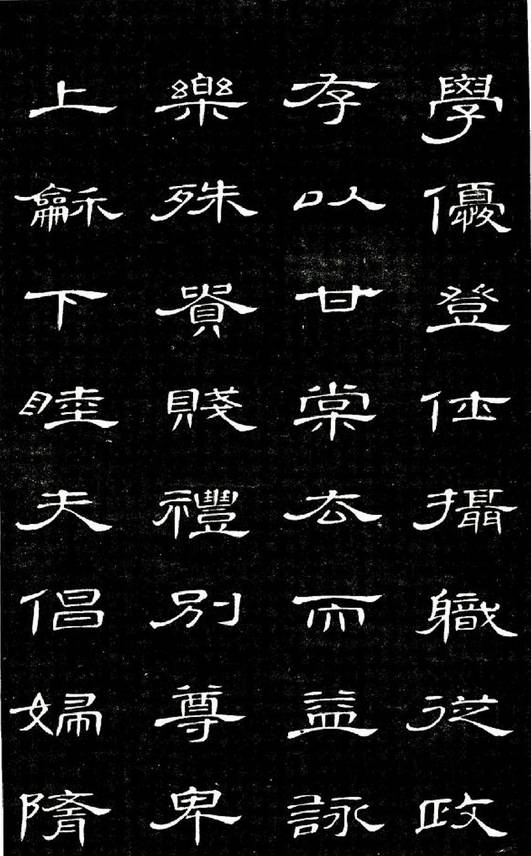 學優登仕攝職從政
存以甘棠去而益詠
樂殊貴賤禮別尊卑
上龢下睦夫倡婦隋